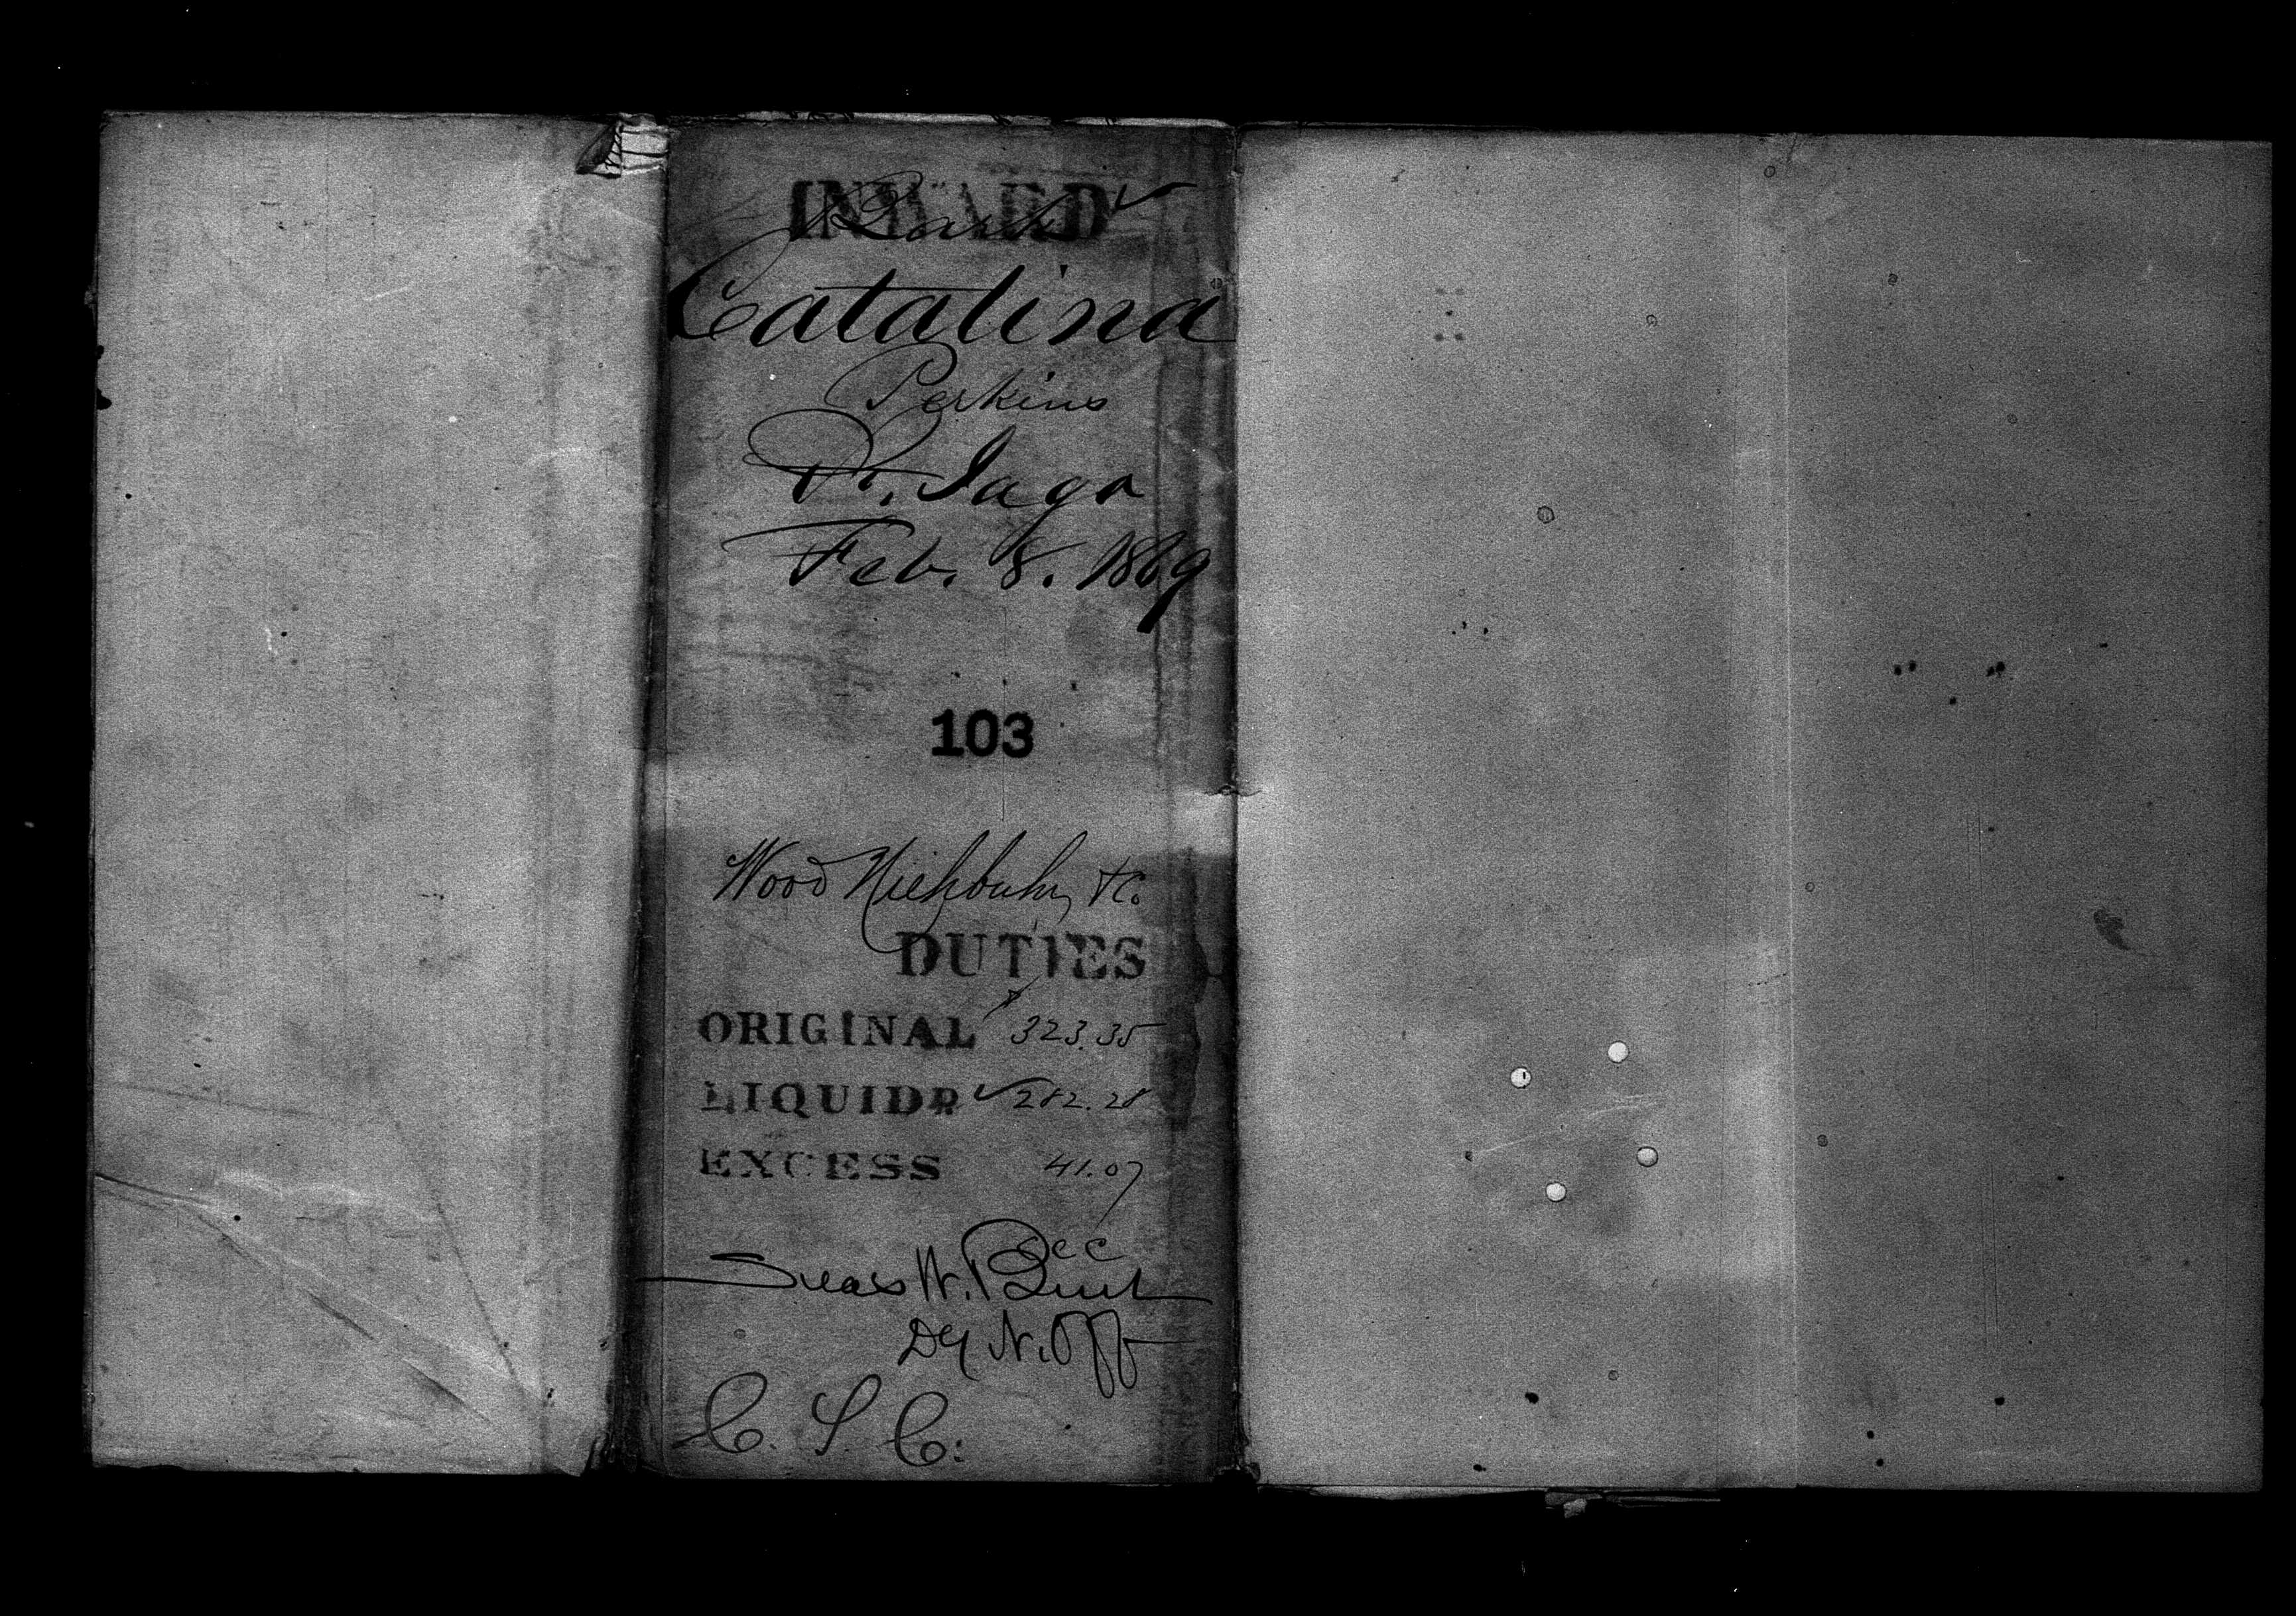 INWARD
Bark
Catalina
Perkins
St. Jago
Feb. 8. 1869
103
Wood Niehbuhr &c.
DUTIES
ORIGINAL $ 323.35
LIQUIDR 282.28
EXCESS 41.07
Silas W. Burt
Dy N. Off
C. S. C.